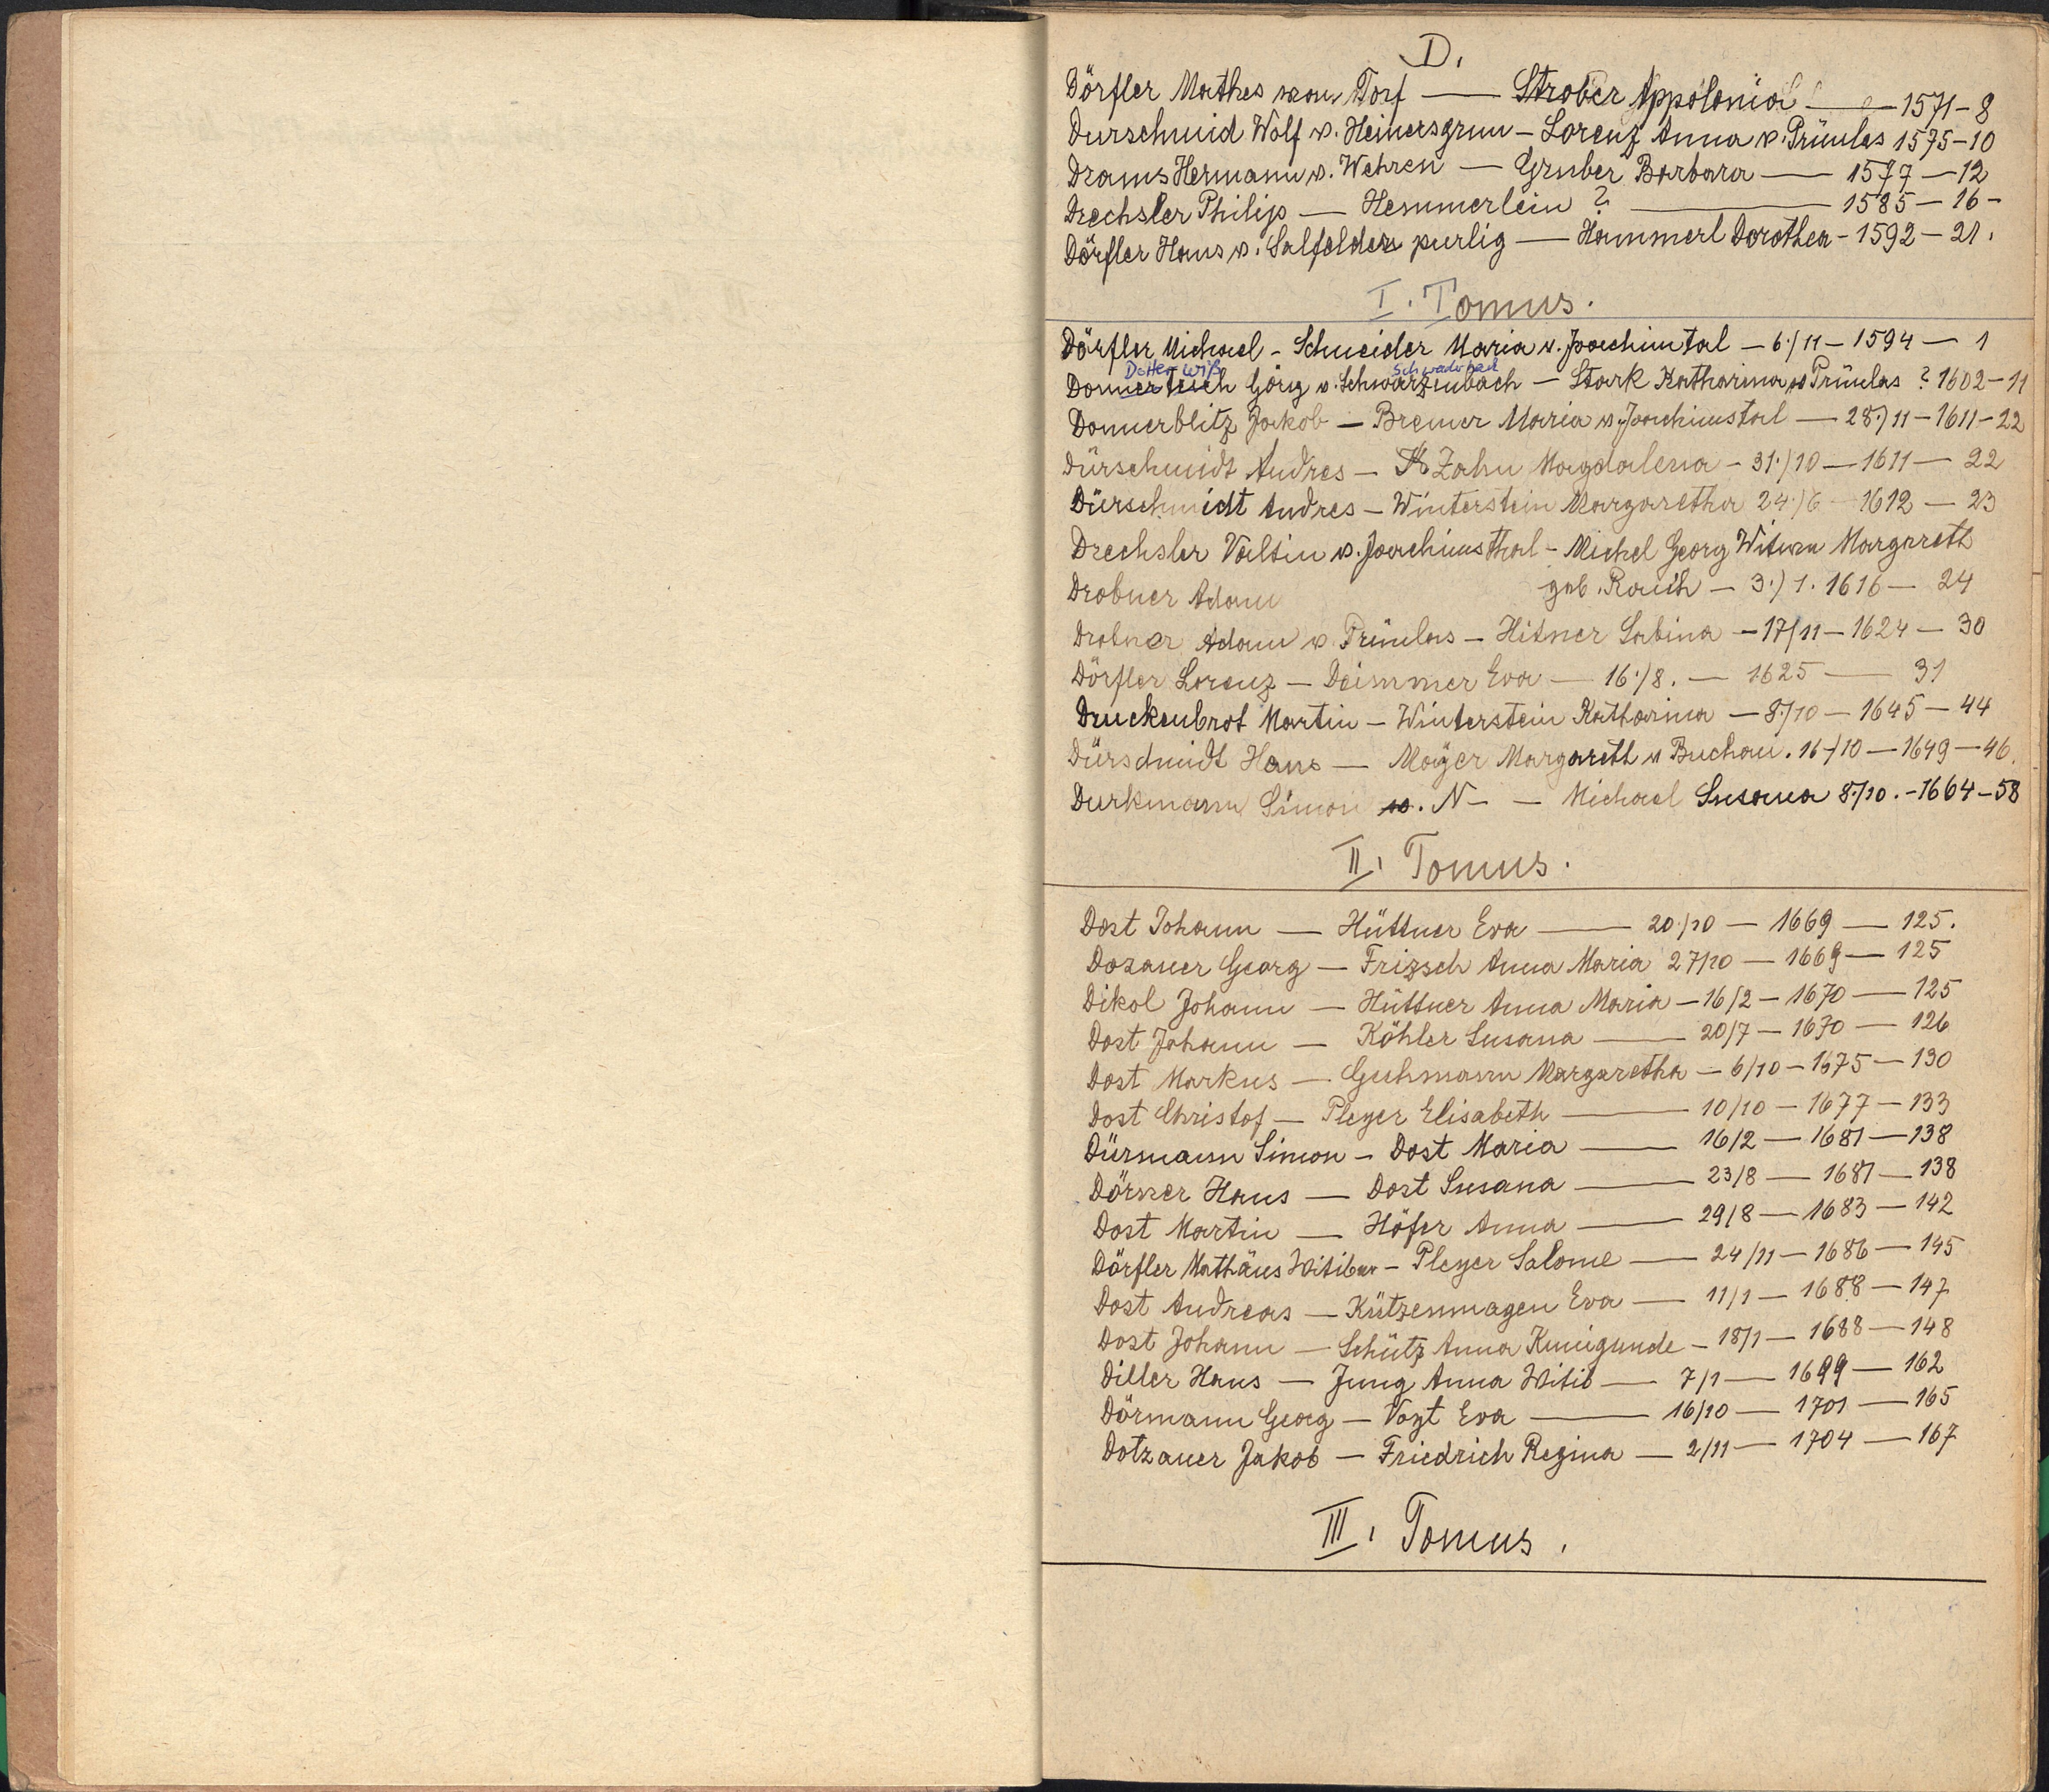 D.
Dörfler Mathes von Torf — Strober Appolonia — 1571 - 8
Durschmid Wolf v. Heinersgrun - Lorenz Anna v. Prünlas 1575 - 10
Drams Hermann v. Wehren — Gruber Barbara — 1577 — 12
Drechsler Philip — Hemmerlein ? — 1585 — 16 -
Dörfler Hans v. Salfelder purlig — Hammerl Dorothea - 1592 — 21.
I. Tomus.
Dörfler Michael - Schneider Maria v. Joachimtal — 6·/11 — 1594 — 1
Dotterwiß Schwaderbach
Görg v. Schwarzenbach — Stark Katharina v Prünlas ? 1602 - 11
Donnerblitz Jakob — Bremer Maria v. Joachimstal — 28·/11 - 1611 - 22
Dürschmidt Andres — Zahn Magdalena - 31·/10 — 1611 — 22
Dürschmidt Andres — Winterstein Margaretha 24·/6 — 1612 — 23
Drechsler Valtin v. Joachimsthal - Michel Georg Witwen Margareth
Drobner Adam geb. Rauch — 3·/1. 1616 — 24
Drobner Adam v. Prünlas — Hitner Sabina — 17/11 — 1624 — 30
Dörfler Lorenz — Deimmer Eva — 16·/8. — 1625 — 31
Druckenbrot Martin — Winterstein Katharina — 8·/10 — 1645 — 44
Dürschmidt Hans — Mayer Margareth v Buchau. 16·/10 — 1649 — 46.
Durkmann Simon v. N — — Michael Susana 8·/10. - 1664 - 58
II. Tomus.
Dost Johann — Hüttner Eva — 20·/10 — 1669 — 125.
Dozauer Georg — Frizsch Anna Maria 27/10 — 1669 — 125
Dikol Johann — Hüttner Anna Maria — 16/2 — 1670 — 125
Dost Johann — Köhler Susana — 20/7 — 1670 — 126
Dost Markus — Gehmann Margaretha — 6/10 - 1675 — 130
Dost Christof — Pleyer Elisabeth — 10/10 — 1677 — 133
Dürmann Simon - Dost Maria — 16/2 — 1681 — 138
Dörner Hans — Dost Susana — 23/8 — 1681 — 138
Dost Martin — Höfer Anna — 29/8 — 1683 — 142
Dörfler Mathäus Witiber - Pleyer Salome — 24/11 — 1686 — 145
Dost Andreas — Kützenmagen Eva — 11/1 — 1688 — 147
Dost Johann — Schütz Anna Kunigunde - 18/1 — 1688 — 148
Diller Hans — Jung Anna Witib — 7/1 — 1699 — 162
Dörmann Georg — Vogt Eva — 16/10 — 1701 — 165
Dotzauer Jakob — Friedrich Regina — 2/11 — 1704 — 167
III. Tomus.